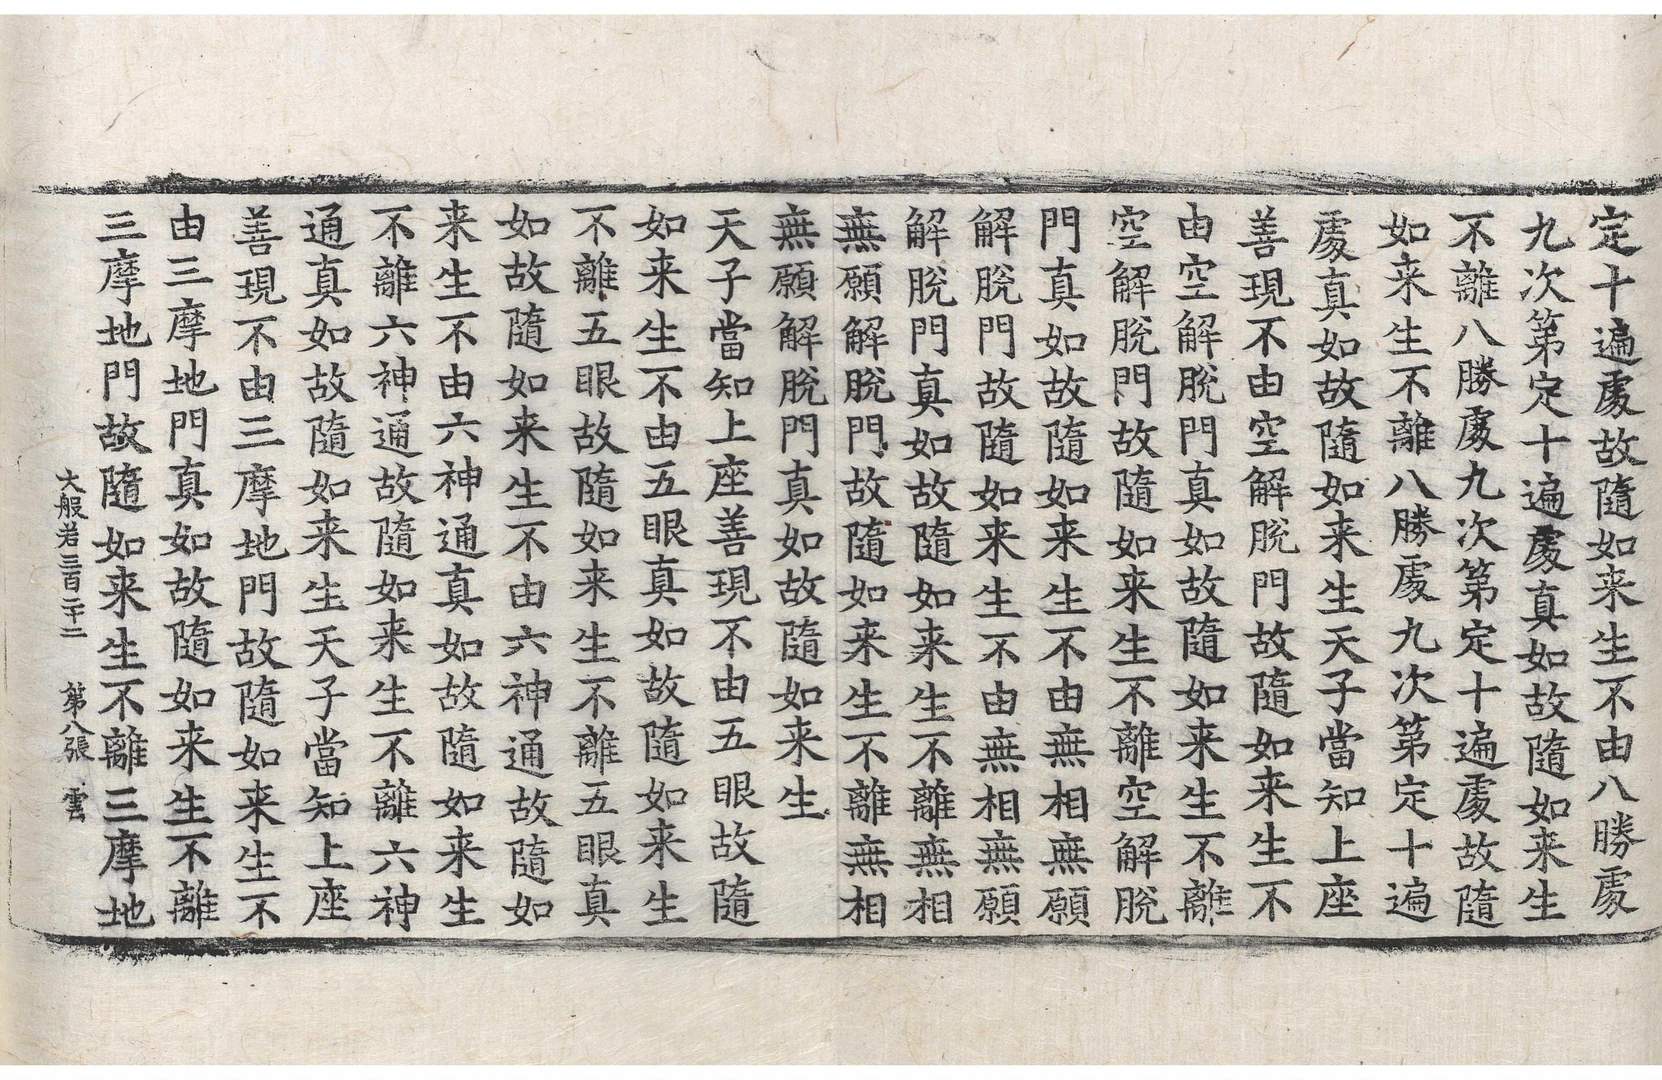 定十遍處故隨如来生不由八勝處
九次第定十遍處真如故隨如来生
不離八勝處九次第定十遍處故隨
如来生不離八勝處九次第定十遍
處真如故隨如来生天子當知上座
善現不由空解脫門故隨如来生不
由空解脫門真如故隨如来生不離
空解脫門故隨如来生不離空解脫
門真如故隨如来生不由無相無願
解脫門故隨如来生不由無相無願
解脫門真如故隨如来生不離無相
無願解脫門故隨如来生不離無相
無願解脫門真如故隨如来生
天子當知上座善現不由五眼故隨
如来生不由五眼真如故隨如来生
不離五眼故隨如来生不離五眼真
如故隨如来生不由六神通故隨如
来生不由六神通真如故隨如来生
不離六神通故隨如来生不離六神
通真如故隨如来生天子當知上座
善現不由三摩地門故隨如来生不
由三摩地門真如故隨如来生不離
三摩地門故隨如来生不離三摩地
大般若三百二十二 第八張 雲